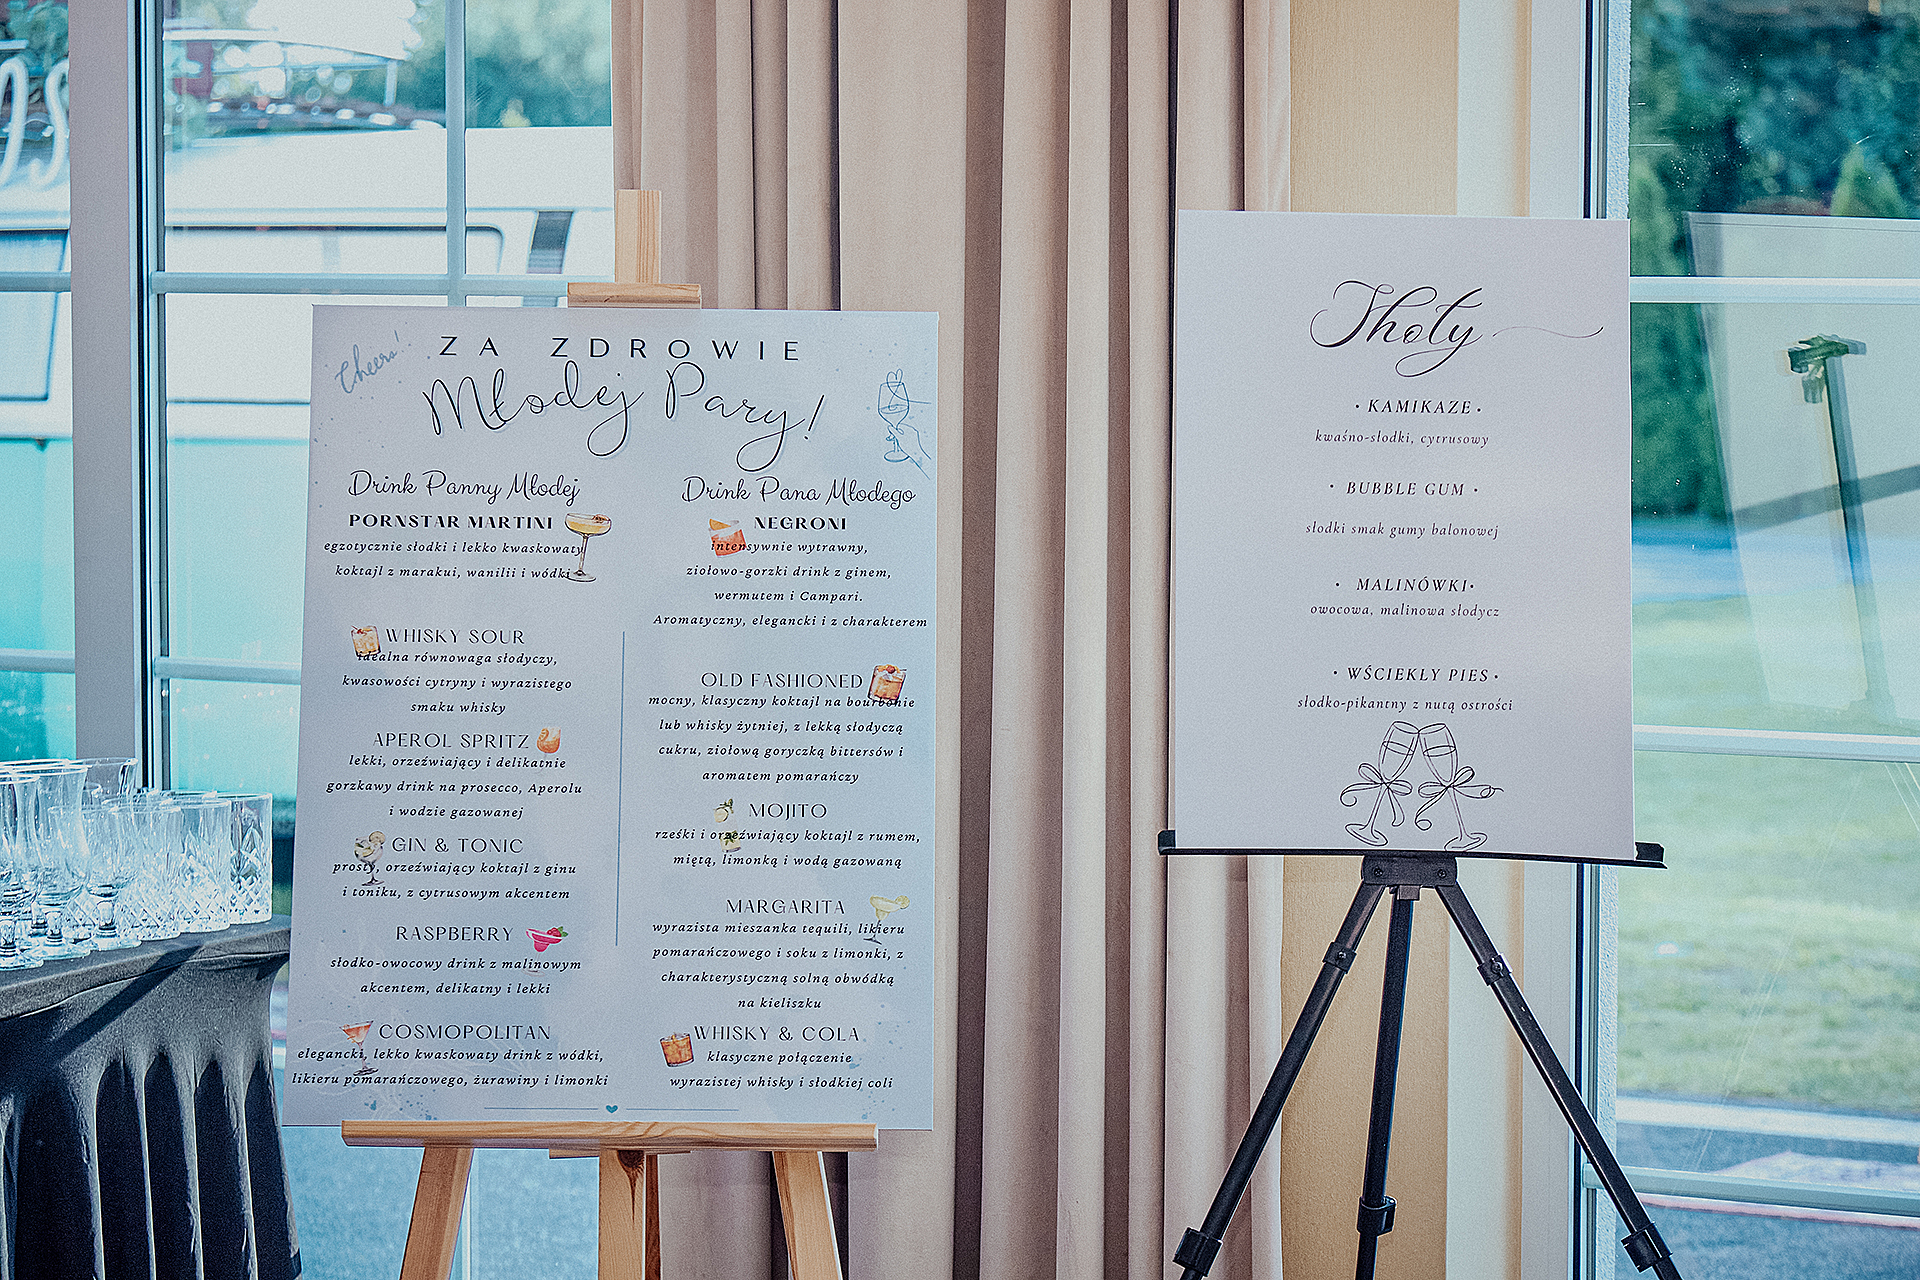 Cheers!
ZA ZDROWIE
Młodej Pary!
Drink Panny Młodej
PORNSTAR MARTINI
egzotycznie słodki i lekko kwaskowaty
koktajl z marakui, wanilii i wódki
WHISKY SOUR
idealna równowaga słodyczy,
kwasowości cytryny i wyrazistego
smaku whisky
APEROL SPRITZ
lekki, orzeźwiający i delikatnie
gorzkawy drink na prosecco, Aperolu
i wodzie gazowanej
GIN & TONIC
prosty, orzeźwiający koktajl z ginu
i toniku, z cytrusowym akcentem
RASPBERRY
słodko-owocowy drink z malinowym
akcentem, delikatny i lekki
COSMOPOLITAN
elegancki, lekko kwaskowaty drink z wódki,
likieru pomarańczowego, żurawiny i limonki
Drink Pana Młodego
NEGRONI
intensywnie wytrawny,
ziołowo-gorzki drink z ginem,
wermutem i Campari.
Aromatyczny, elegancki i z charakterem
OLD FASHIONED
mocny, klasyczny koktajl na bourbonie
lub whisky żytniej, z lekką słodyczą
cukru, ziołową goryczką bittersów i
aromatem pomarańczy
MOJITO
rześki i orzeźwiający koktajl z rumem,
miętą, limonką i wodą gazowaną
MARGARITA
wyrazista mieszanka tequili, likieru
pomarańczowego i soku z limonki, z
charakterystyczną solną obwódką
na kieliszku
WHISKY & COLA
klasyczne połączenie
wyrazistej whisky i słodkiej coli
Shoty
• KAMIKAZE •
kwaśno-słodki, cytrusowy
• BUBBLE GUM •
słodki smak gumy balonowej
• MALINÓWKI •
owocowa, malinowa słodycz
• WŚCIEKŁY PIES •
słodko-pikantny z nutą ostrości